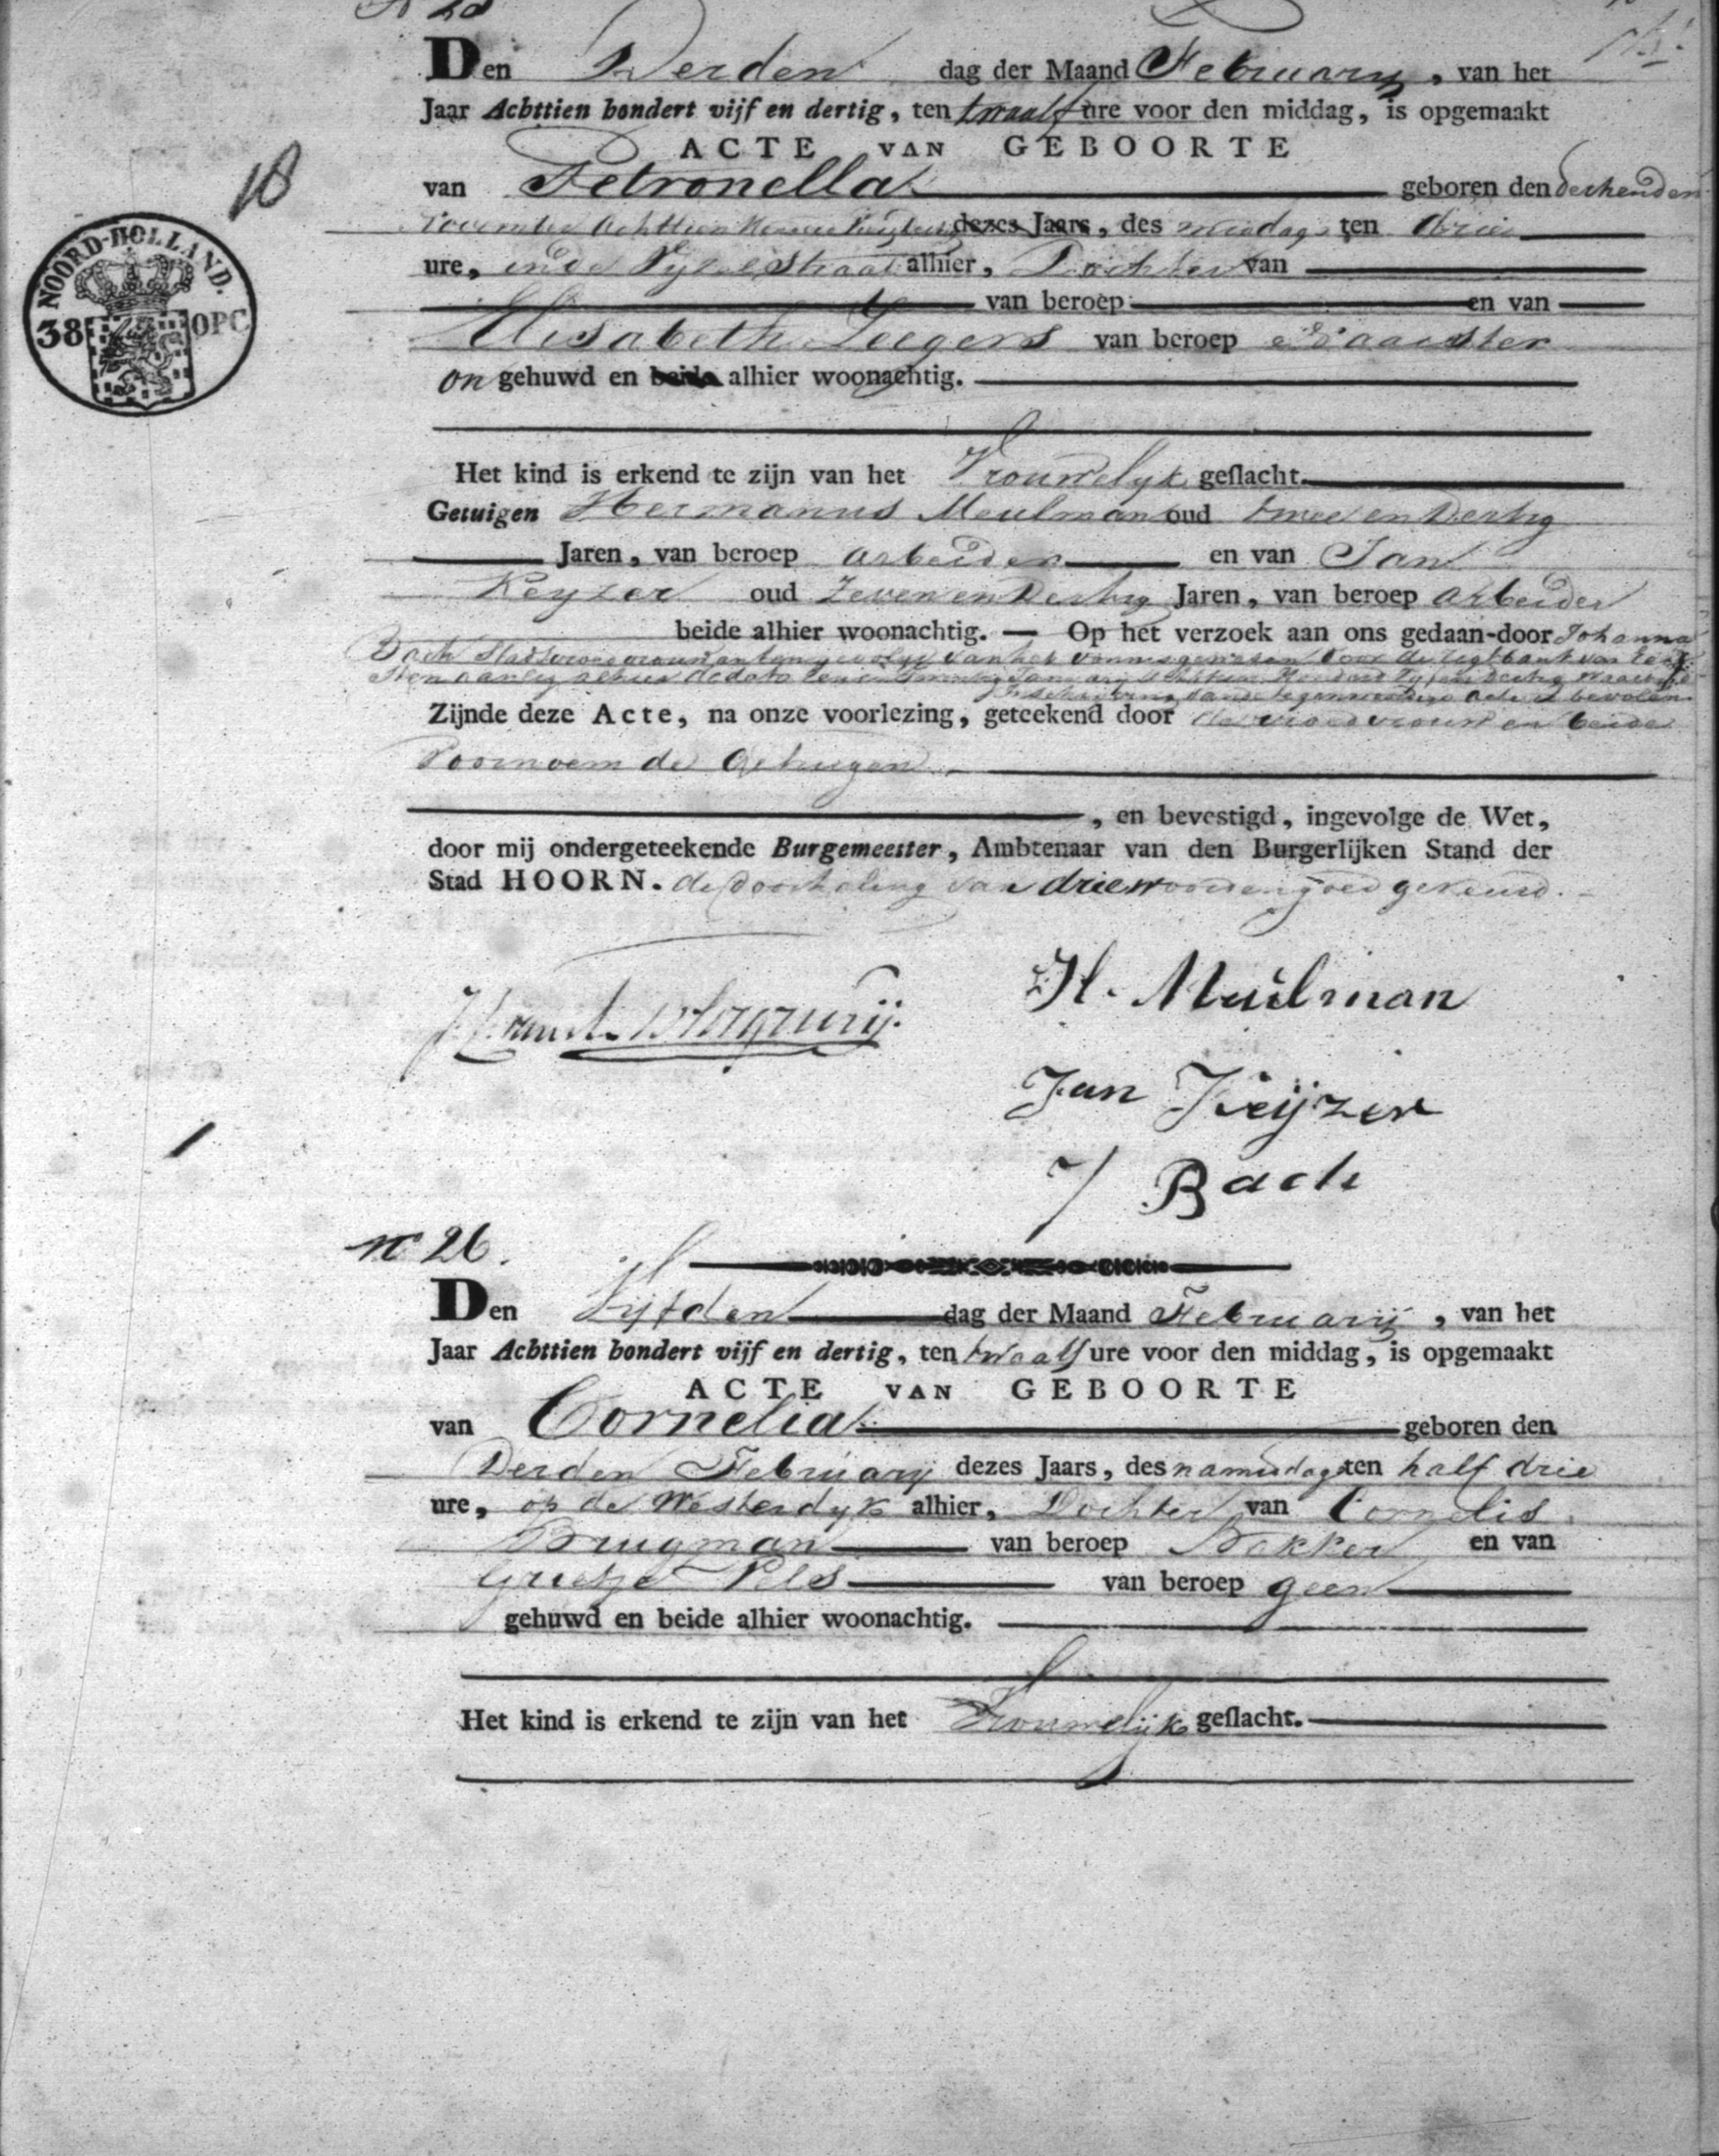 Den Derden dag der Maand February, van het
Jaar Achttien hondert vijf en dertig, ten twaalf ure voor den middag, is opgemaakt
ACTE VAN GEBOORTE
18
van Petronella geboren den dertienden
November Achttien Honderd dezes Jaars, des middags ten drie
NOORD-HOLLAND.
38 OPC
ure, in de straat alhier, Dochter van
van beroep en van
Elisabeth Seegers van beroep Naaister
on gehuwd en beide alhier woonachtig.
Het kind is erkend te zijn van het Vrouwelyk geslacht.
Getuigen Hermanus Meulman oud twee en Dertig
Jaren, van beroep arbeider en van Jan
Keyzer oud Zeven en Dertig Jaren, van beroep arbeider
beide alhier woonachtig. — Op het verzoek aan ons gedaan door Johanna
Bach Stads vroedvrouw en ten gevolge van het vonnis gewezen door de regtbank van Eer
sten aanleg alhier de dato Januarij Achttien Honderd Vyf en Dertig waarbij de
Inschryving van de tegenwoordige acte is bevolen
Zijnde deze Acte, na onze voorlezing, geteekend door de vroedvrouw en beide
Voornoemde Getuigen
, en bevestigd, ingevolge de Wet,
door mij ondergeteekende Burgemeester, Ambtenaar van den Burgerlijken Stand der
Stad HOORN. de doorhaling van drie woorden goed gekeurd.
H. Meulman
Jan Keijzer
J Bach
no 26.
Den Vijfden dag der Maand Februarij, van het
Jaar Achttien hondert vijf en dertig, ten twaalf ure voor den middag, is opgemaakt
ACTE VAN GEBOORTE
van Cornelia geboren den
Derden Februarij dezes Jaars, des namiddags ten half drie
ure, op de Westerdyk alhier, Dochter van Cornelis
Brugman van beroep Bakker en van
Grietje Pels van beroep geen
gehuwd en beide alhier woonachtig.
Het kind is erkend te zijn van het Vrouwelijk geslacht.